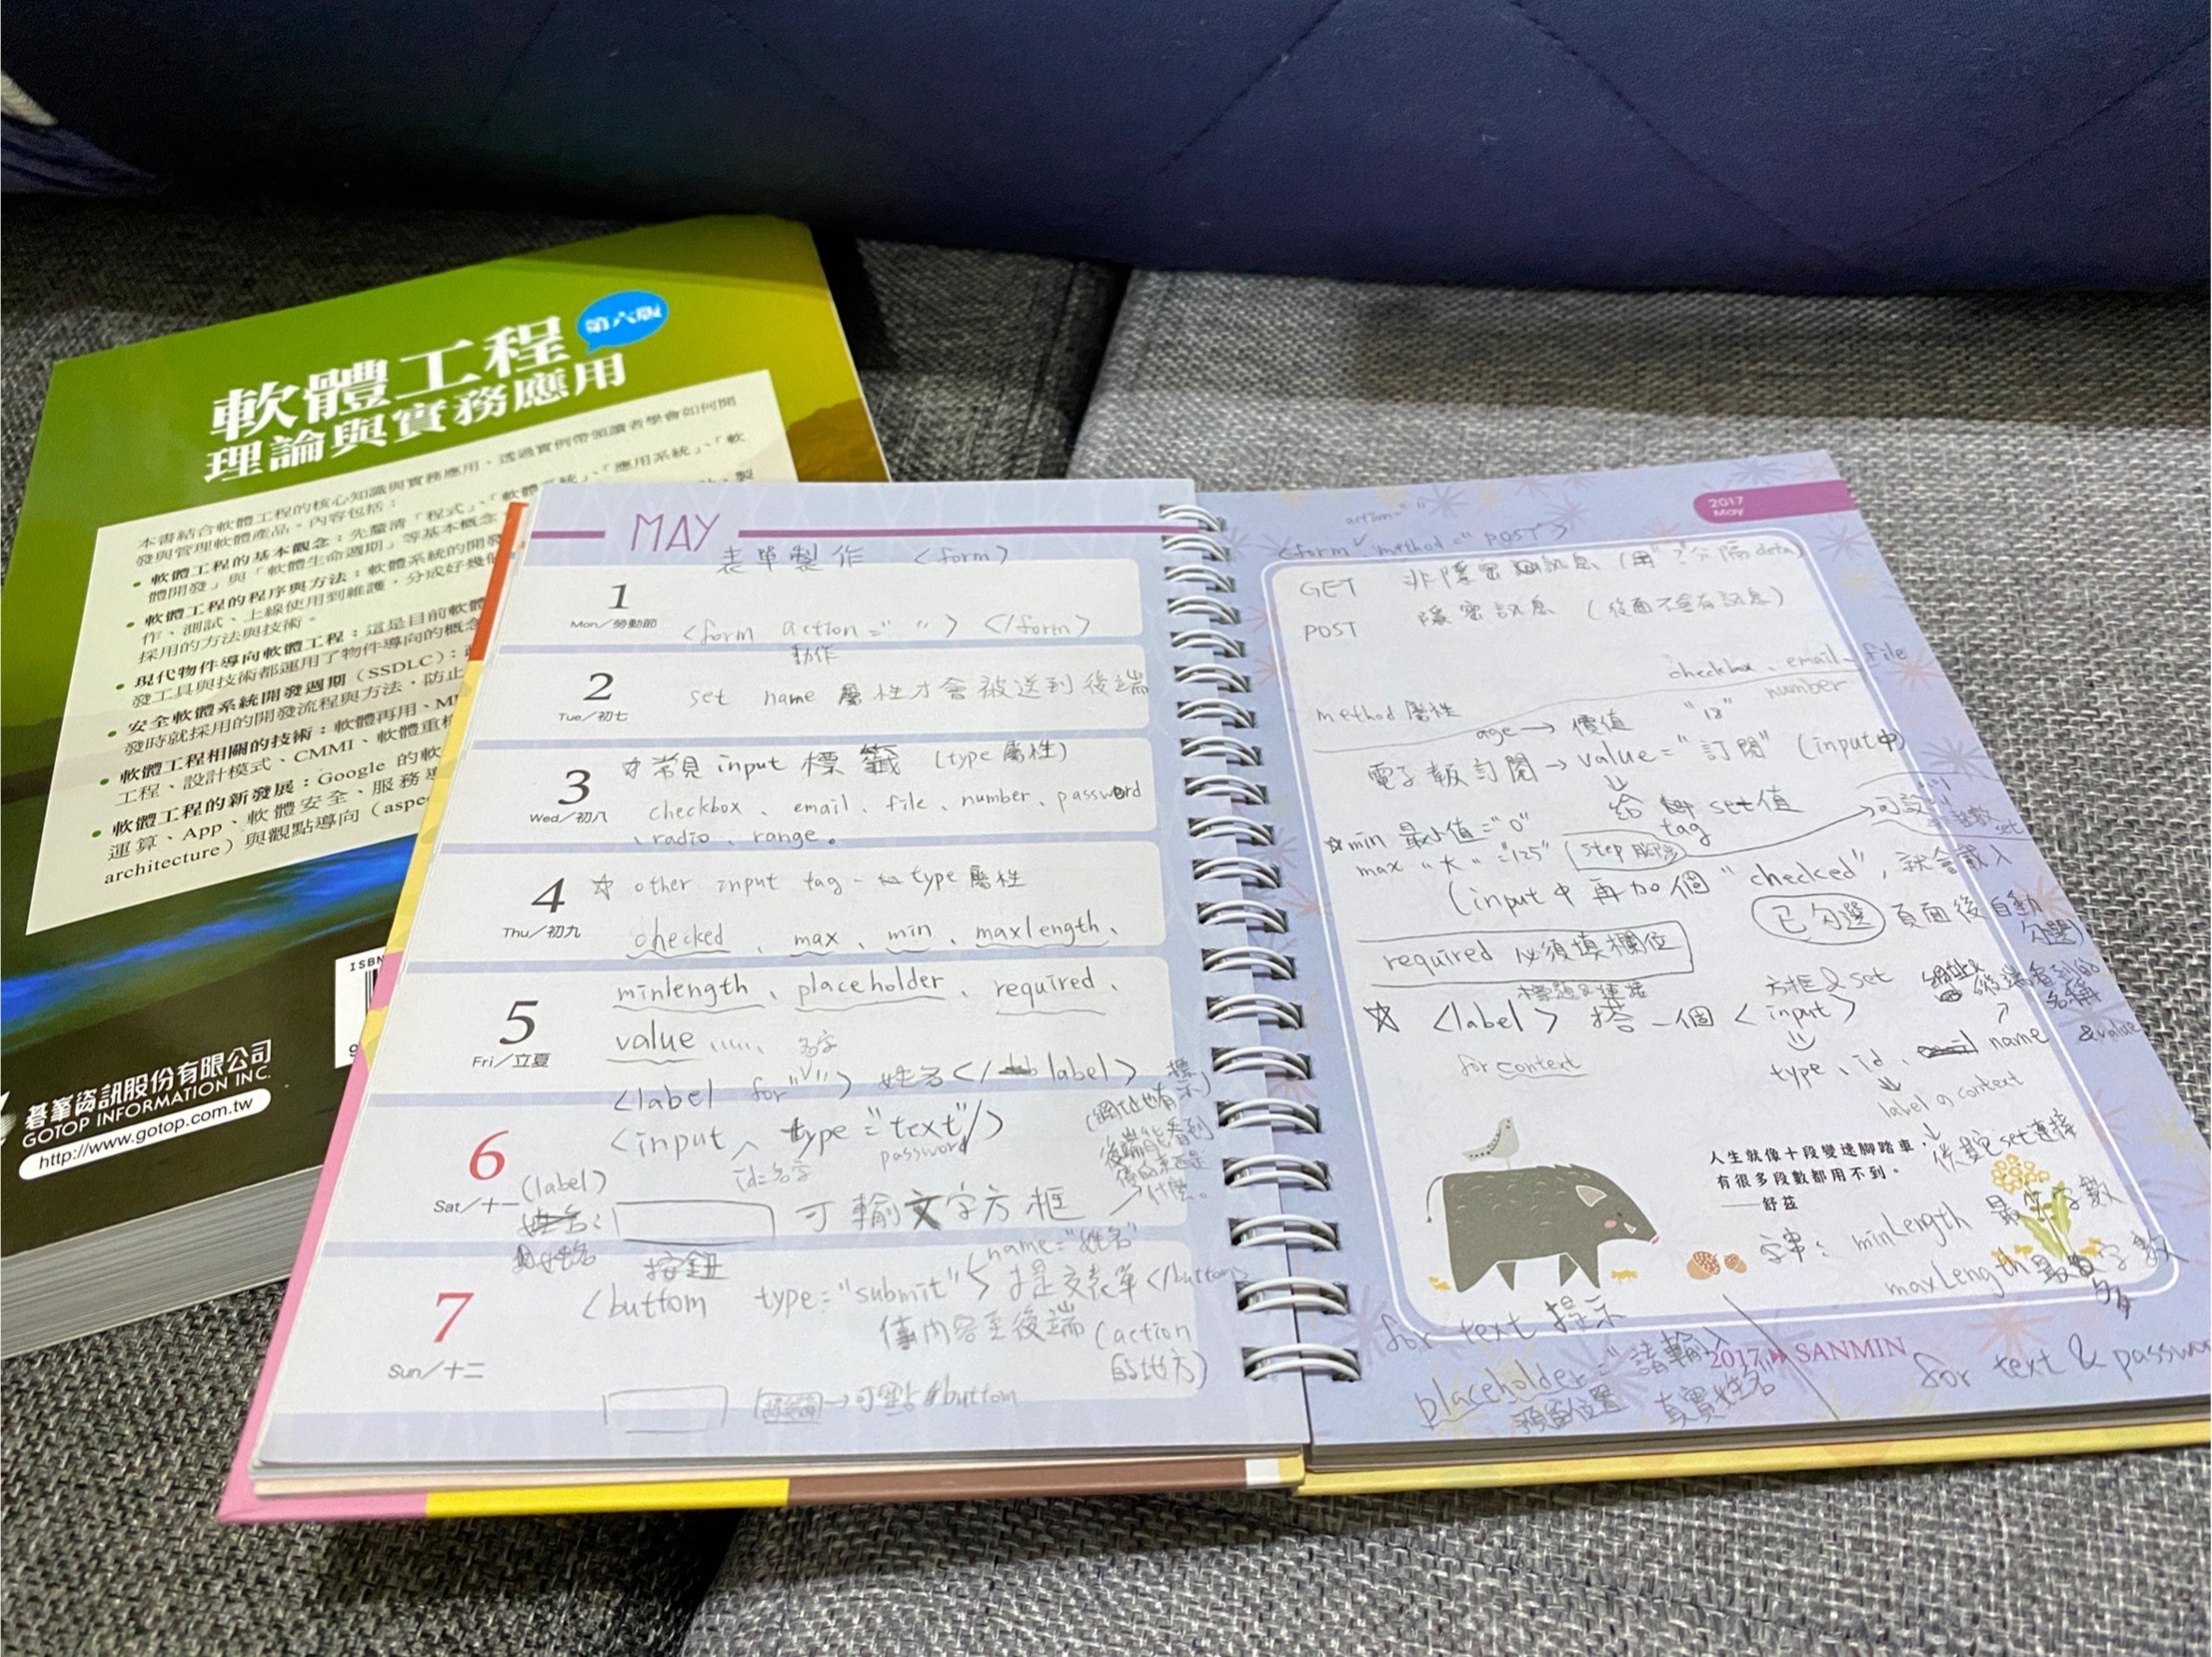 軟體工程
第六版
理論與實務應用
本書結合軟體工程的核心知識與實務應用,透過實例帶領讀者學會如何開
發與管理軟體產品。內容包括:
• 軟體工程的基本觀念:先釐清「程式」、「軟體系統」、「應用系統」、「軟
體開發」與「軟體生命週期」等基本概念
• 軟體工程的程序與方法:軟體系統的開發 製
作、測試、上線使用到維護,分成好幾個
採用的方法與技術。
• 現代物件導向軟體工程:這是目前軟體
發工具與技術都運用了物件導向的概念
• 安全軟體系統開發週期(SSDLC):
發時就採用的開發流程與方法,防止
• 軟體工程相關的技術:軟體再用、M
工程、設計模式、CMMI、軟體重構
• 軟體工程的新發展:Google 的軟
運算、App、軟體安全、服務導
architecture)與觀點導向(aspec
ISBN
9
碁峯資訊股份有限公司
GOTOP INFORMATION INC.
http://www.gotop.com.tw
MAY
表單製作 <form>
1
Mon/勞動節
<form action=" "> </form>
動作
2
Tue/初七
set name 屬性才會被送到後端
3
Wed/初八
☆常見 input 標籤 (type 屬性)
checkbox、email、file、number、password
、radio、range。
4
Thu/初九
☆ other input tag - type 屬性
checked、max、min、maxlength、
5
Fri/立夏
minlength、placeholder、required、
value ......
名字
<label for=" "> 姓名</label>
6
Sat/十一
<input type="text"/>
password
id=名字
(網址也有標示)
後端能看到
什麼。
(label)
姓名
可輸文字方框
name="姓名"
7
Sun/十二
按鈕
<buttom type="submit"> 提交表單</buttom>
傳內容至後端 (action
的地方)
→可點 buttom
2017
May
action=" "
<form method="POST">
GET 非隱密訊息 (用"?"分隔data)
POST 隱密訊息 (後面不會有訊息)
checkbox、email、file
number
method 屬性
age → 價值 "18"
電子報訂閱→ value="訂閱" (input中)
給 tag set值
☆min 最小值="0"
max "大" ="125" (step 間隔)
可設
(input中再加個"checked",就會載入
已勾選 頁面後自動
勾選)
required 必須填欄位
標題&連結
方框&set
☆ <label> 搭一個 <input>
for context
type、id、name
&value
後端看到的
名稱
label の context
set連接
人生就像十段變速腳踏車,
有很多段數都用不到。
——舒茲
字串: minLength 最少字數
maxLength 最多字數
for text 提示
placeholder="請輸入
真實姓名"
預留位置
2017 SANMIN
for text & passwo